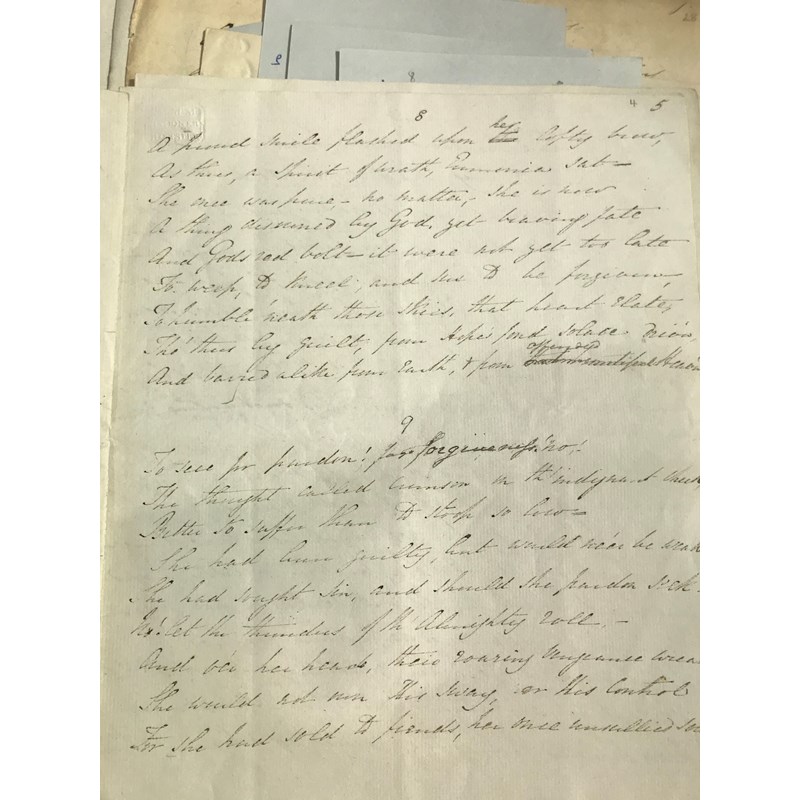 4 5
8
A proud smile flashed upon her lofty brow,
As thus, a spirit of wrath, Eumonia sat—
She once was pure — no matter, she is now
A thing disowned by God, yet braving fate
And Gods red bolt — it were not yet too late
To weep, to kneel, and sue to be forgiven,
To humble 'neath those skies, that heart elate,
Tho' thus by guilt, from Hope's fond solace driv'n,
And barred alike from Earth, & from offended Heav'n
9
To sue for pardon! for forgiveness! no!
The thought called crimson on th' indignant cheek,
Better to suffer than to stoop so low—
She had been guilty, but would ne'er be weak
She had sought sin, and should she pardon seek
No! let the thunders of th' Almighty roll. —
And o'er her head, their roaring vengeance wreak
She would not own His sway, or His control
For she had sold to fiends, her once unsullied